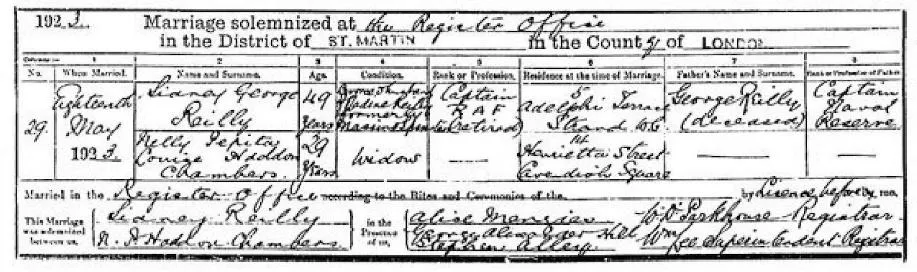 1923. Marriage solemnized at the Register Office
in the District of ST. MARTIN in the County of LONDON
Columns:— 1 2 3 4 5 6 7 8
No. When Married. Name and Surname. Age. Condition. Rank or Profession. Residence at the time of Marriage. Father's Name and Surname. Rank or Profession of Father
29. Eighteenth May 1923.
Sidney George Reilly
49 years
formerly
Captain RAF (retired)
5 Adelphi Terrace Strand W.C.
George Reilly (deceased)
Captain Naval Reserve
Nelly Pepita Louise Haddon Chambers.
29 years
Widow
—
Henrietta Street Cavendish Square
—
—
Married in the Register Office according to the Rites and Ceremonies of the by Licence before me,
This Marriage was solemnized between us,
Sidney Reilly
N. P. Haddon Chambers.
in the Presence of us,
Alice Menzies
George Alexander Hill
Stephen Alley.
W. D. Parkhouse Registrar
Wm Lee Superintendent Registrar